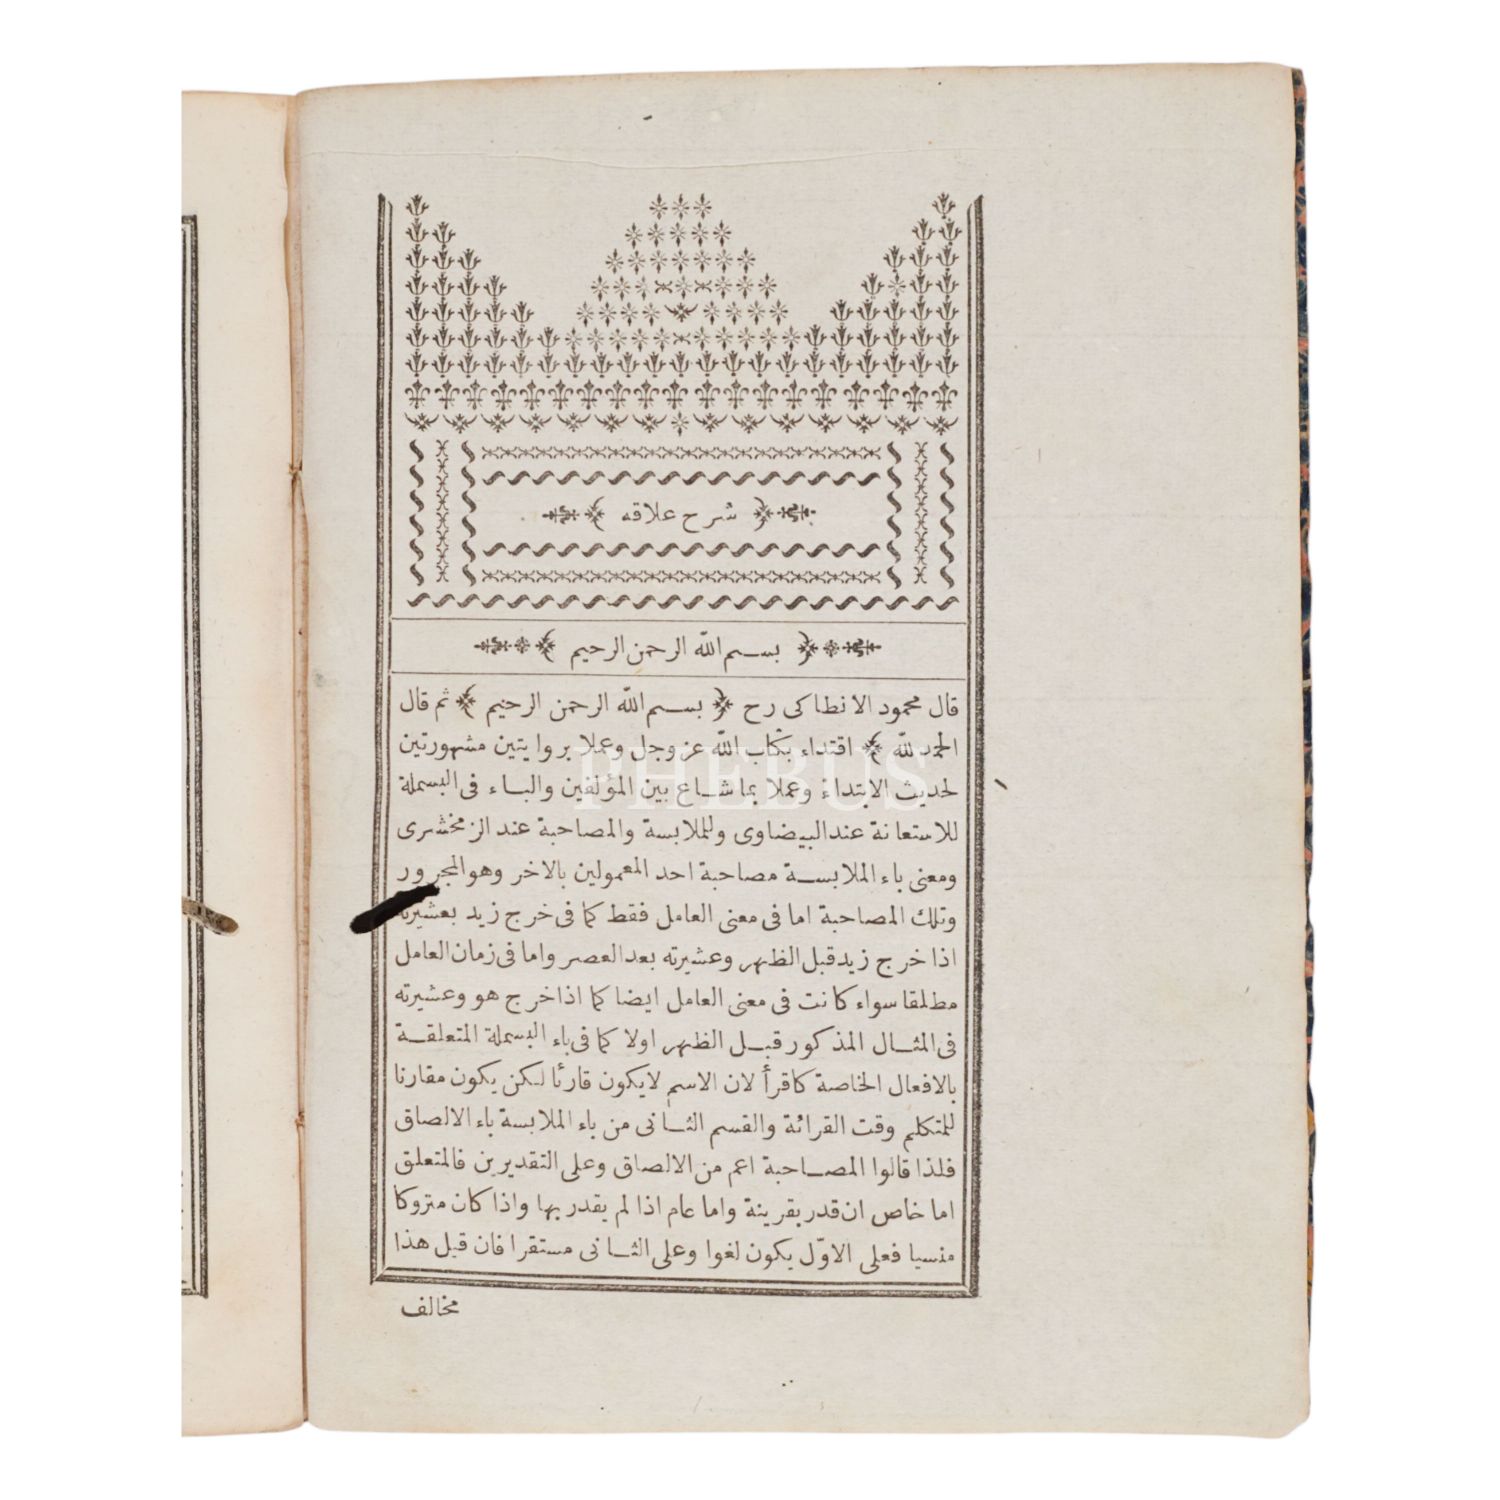 شرح علاقه
بسم الله الرحمن الرحيم
قال محمود الانطاكى رح بسم الله الرحمن الرحيم ثم قال
الحمد لله اقتداء بكتاب الله عز وجل وعملا بروايتين مشهورتين
لحديث الابتداء وعملا بما شاع بين المؤلفين والباء فى البسملة
للاستعانة عند البيضاوى وللملابسة والمصاحبة عند الزمخشرى
ومعنى باء الملابسة مصاحبة احد المعمولين بالاخر وهو المجرور
وتلك المصاحبة اما فى معنى العامل فقط كما فى خرج زيد بعشيرته
اذا خرج زيد قبل الظهر وعشيرته بعد العصر واما فى زمان العامل
مطلقا سواء كانت فى معنى العامل ايضا كما اذا خرج هو وعشيرته
فى المثال المذكور قبل الظهر اولا كما فى باء البسملة المتعلقة
بالافعال الخاصة كاقرأ لان الاسم لا يكون قارئا لكن يكون مقارنا
للمتكلم وقت القرائة والقسم الثانى من باء الملابسة باء الالصاق
فلذا قالوا المصاحبة اعم من الالصاق وعلى التقديرين فالمتعلق
اما خاص ان قدر بقرينة واما عام اذا لم يقدر بها واذا كان متروكا
منسيا فعلى الاوّل يكون لغوا وعلى الثانى مستقرا فان قيل هذا
مخالف
PHEBUS